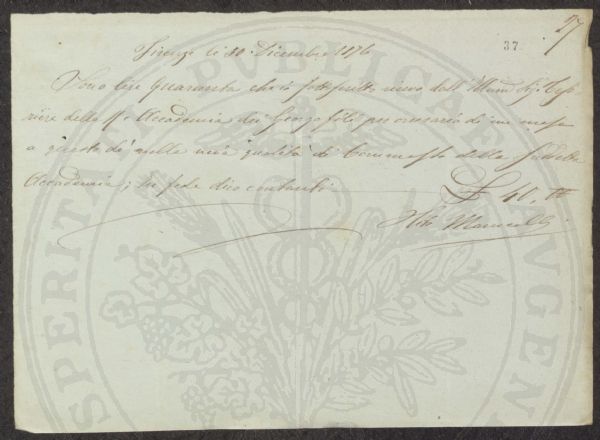 27
37
Firenze li 30 Dicembre 1876
Sono lire Quaranta che io sottoscritto ricevo dall' Illmo Sig. Teso
riere della R. Accademia dei Georgofili per onorario di un mese
a questo dì nella mia qualità di Commesso della suddetta
Accademia; In fede dico contanti £ 40.
PROSPERITATI PUBLICAE AUGENDAE